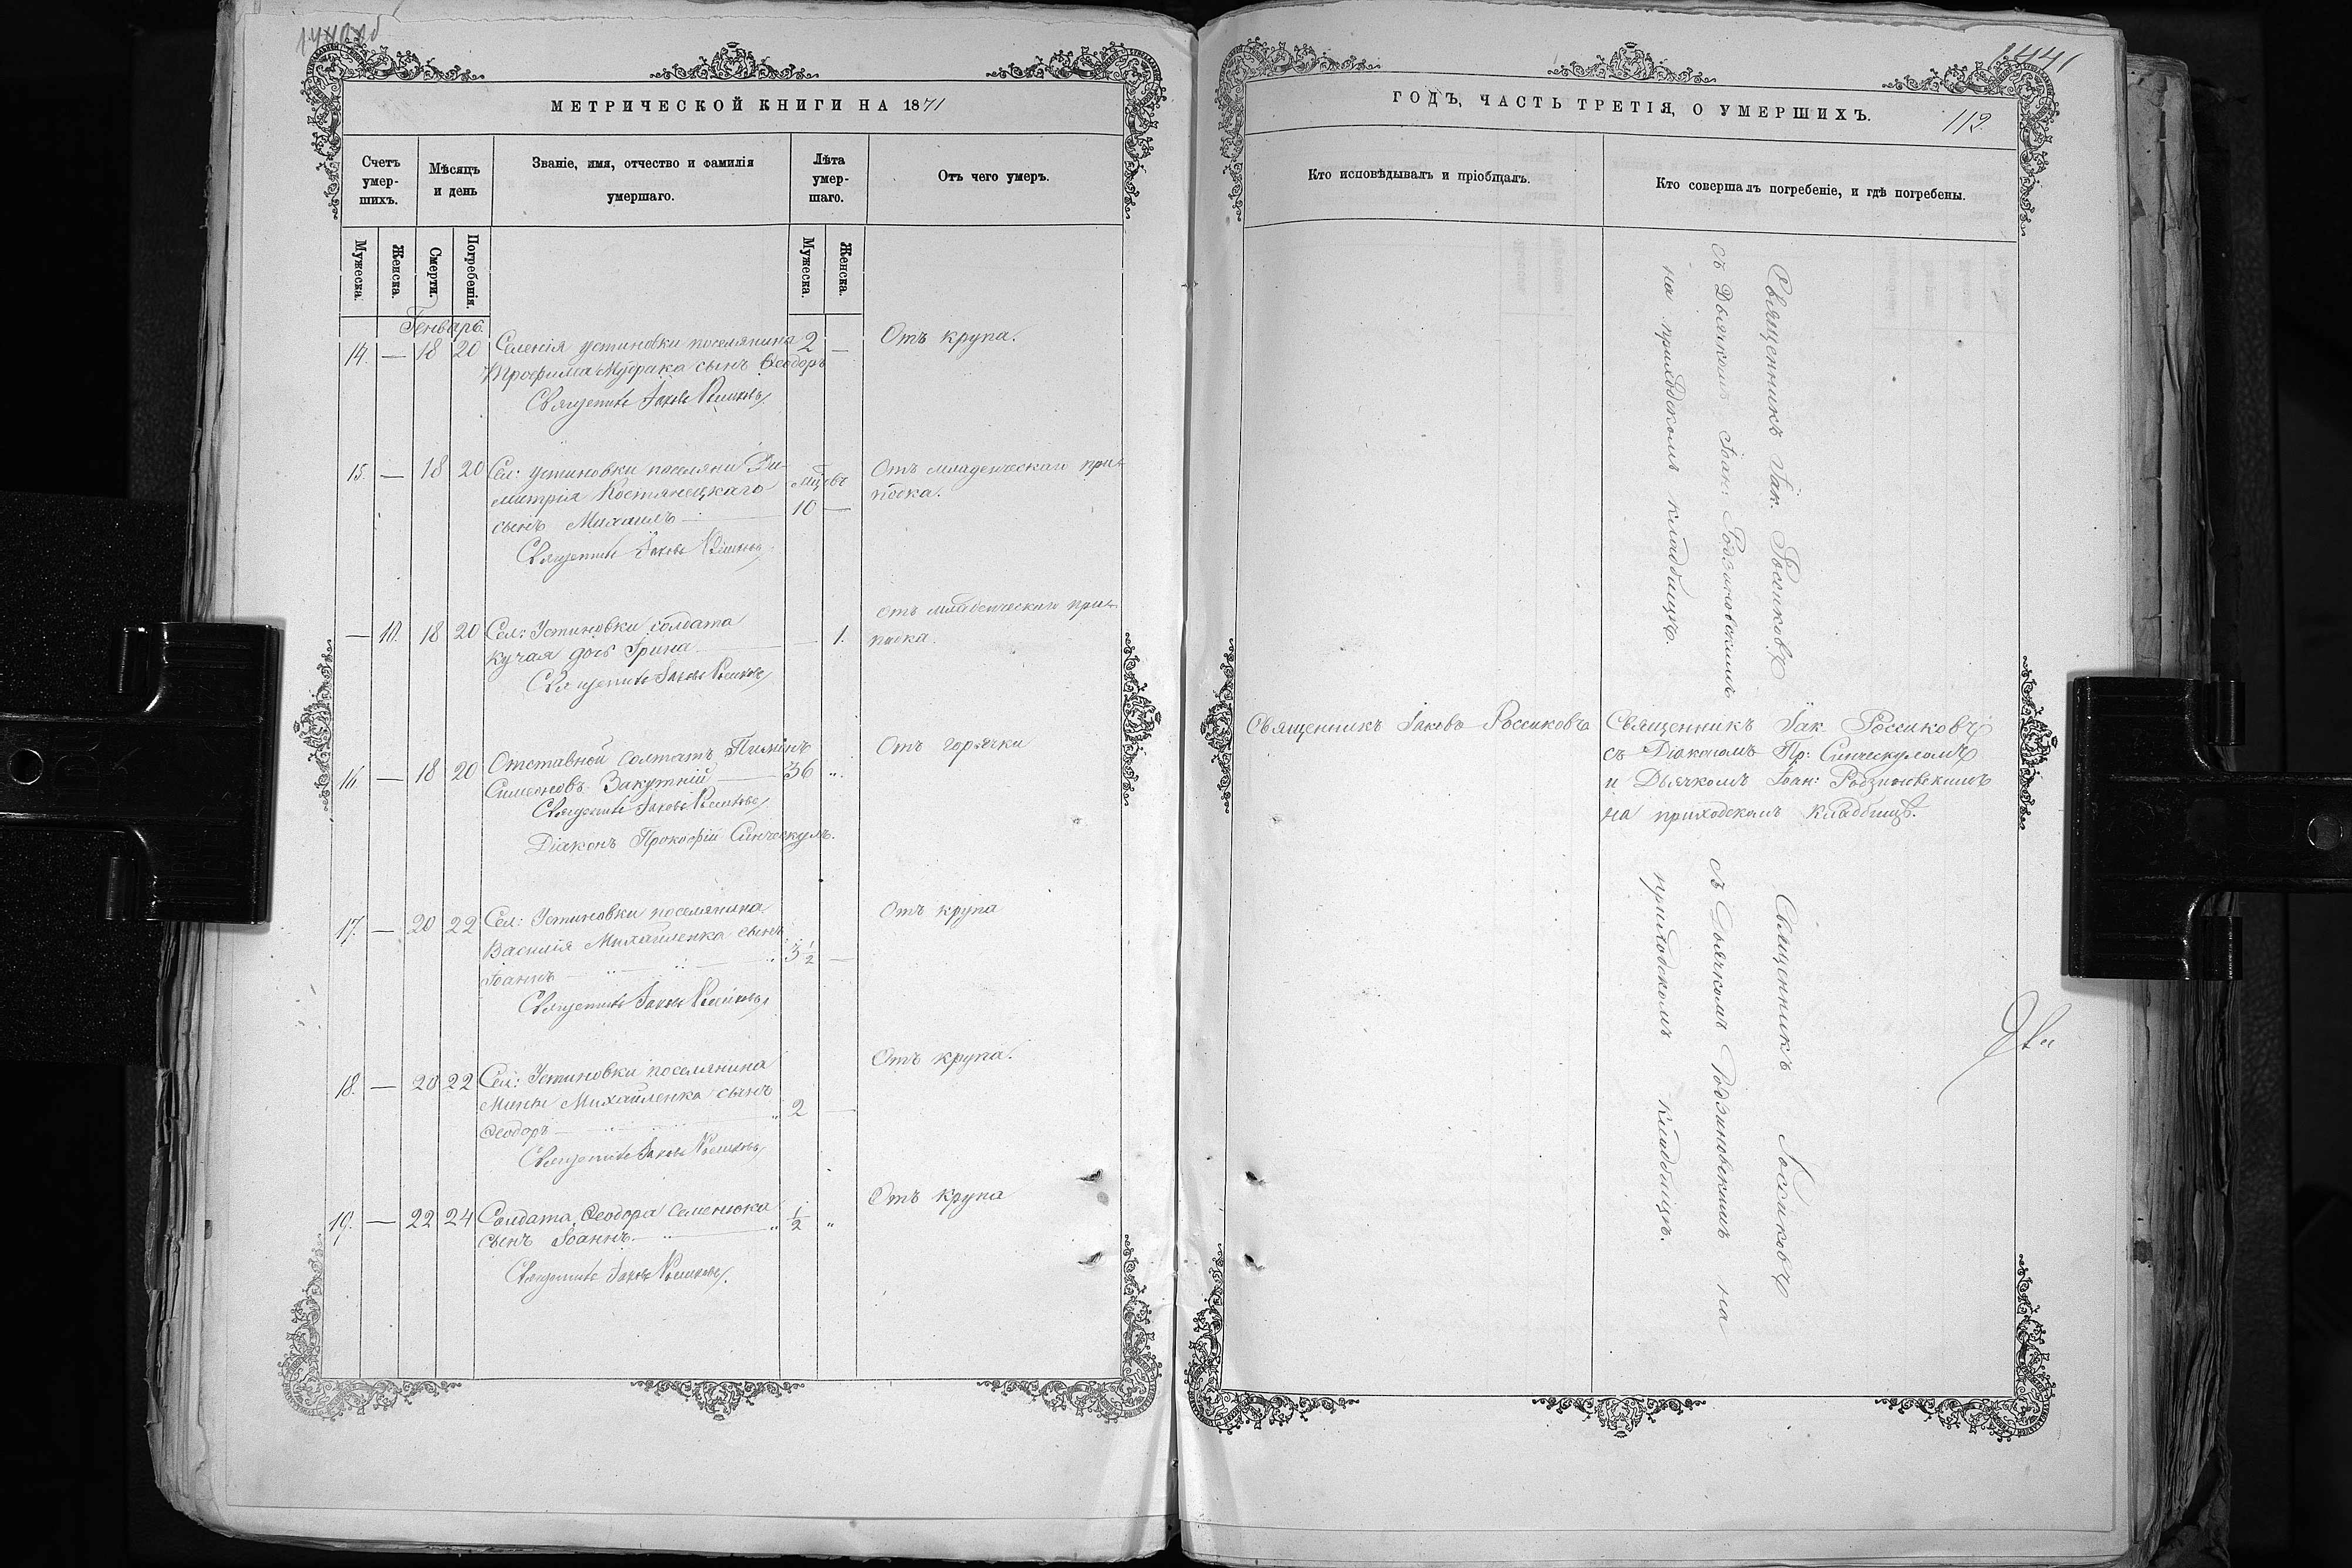 МЕТРИЧЕСКОЙ КНИГИ НА 1871
Счетъ умер-шихъ.
Мѣсяцъ и день
Званіе, имя, отчество и фамилія умершаго.
Лѣта умер-шаго.
Отъ чего умеръ.
Мужеска.
Женска.
Смерти.
Погребенія.
Мужеска.
Женска.
Генварь.
14. — 18 20 Селенія Устиновки поселянина 2 — Отъ крупа.
Трофима сынъ Ѳеодоръ
Священникъ Іаковъ Россиковъ
15. — 18 20 Сел: Устиновки поселяни Ди- Отъ младенческаго при-
митрія Костянецкаго мцовъ падка.
сынъ Михаилъ 10 —
Священникъ Іаковъ Россиковъ
— 10. 18 20 Сел: Устиновки солдата — 1. Отъ младенческаго при-
Кучая дочь Ирина падка.
Священникъ Іаковъ Россиковъ
16 — 18 20 Отставной солтатъ Пименъ 36 „ Отъ горячки
Симеоновъ Закутній
Священникъ Іаковъ Россиковъ
Діаконъ Прокофій Синческулъ.
17. — 20 22 Сел: Устиновки поселянина Отъ крупа
Василія Михайленка сынъ 3 1/2 —
Іоаннъ
Священникъ Іаковъ Россиковъ
18. — 20 22 Сел: Устиновки поселянина Отъ крупа.
Мины Михайленка сынъ 2 —
Ѳеодоръ
Священникъ Іаковъ Россиковъ
19. — 22 24 Солдата Ѳеодора Семенюка 1/2 „ Отъ крупа
сынъ Іоаннъ.
Священникъ Іаковъ Россиковъ.
1441
ГОДЪ, ЧАСТЬ ТРЕТІЯ, О УМЕРШИХЪ.
112.
Кто исповѣдывалъ и пріобщалъ.
Кто совершалъ погребеніе, и гдѣ погребены.
Священникъ Іак. Россиковъ
съ Дьячкомъ Іоан: Родзиновскимъ
на приходскомъ кладбищѣ.
Священникъ Іаковъ Россиковъ
Священникъ Іак Россиковъ
съ Діакономъ Пр: Синческуломъ
и Дьячкомъ Іоан: Родзиновскимъ
на приходскомъ кладбищѣ.
Священникъ Россиковъ
съ Дьячкомъ Родзиновскимъ на
приходскомъ кладбищѣ.